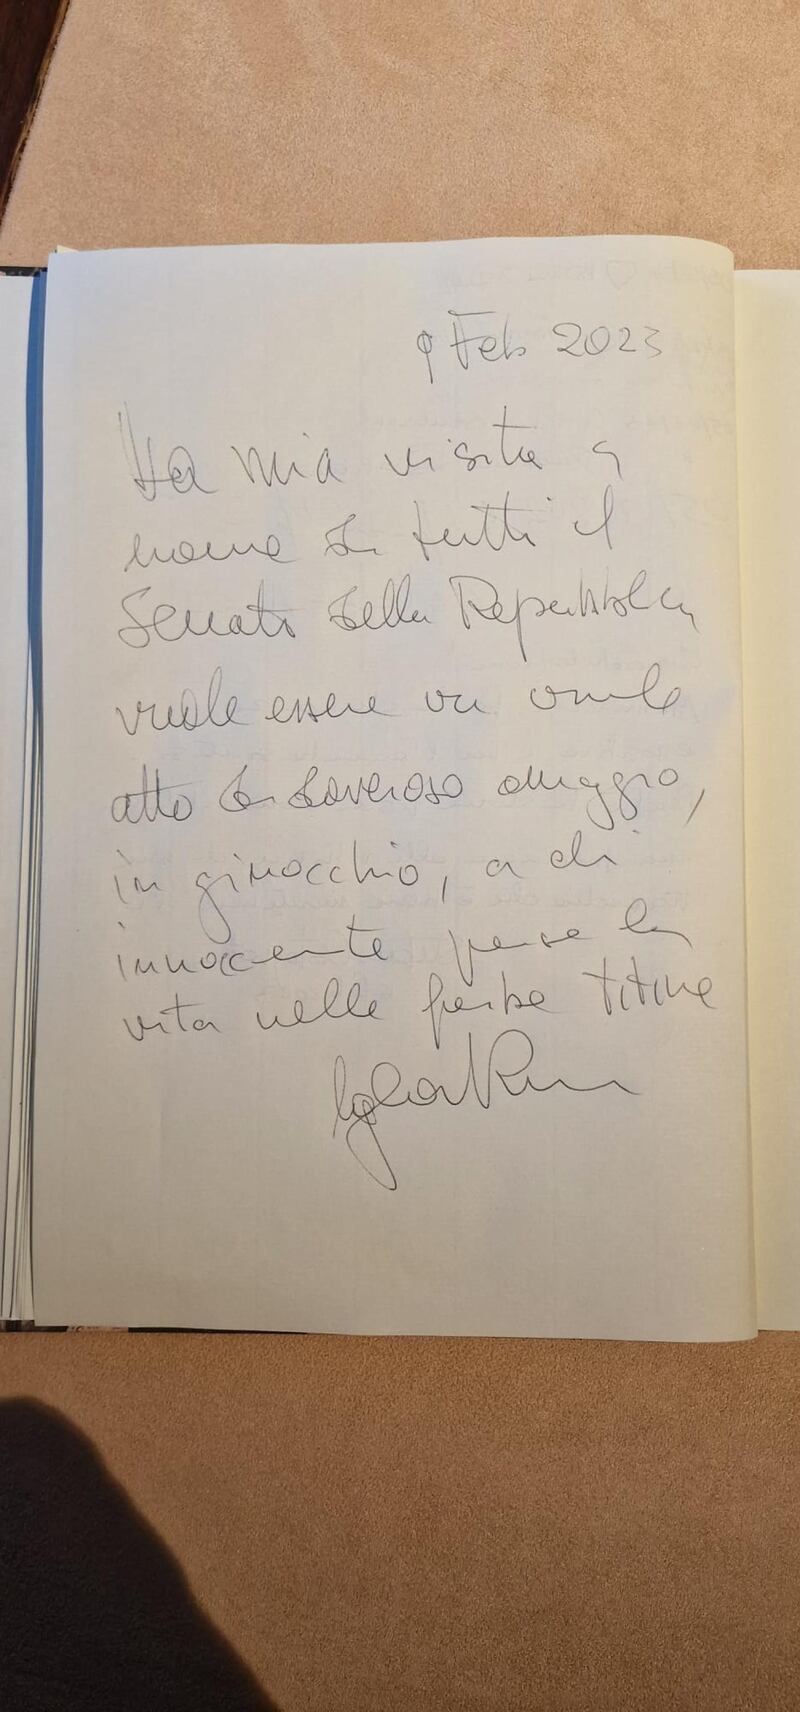 9 Feb 2023
La mia visita a
nome di tutti il
Senato della Repubblica
vuole essere un umile
atto di doveroso omaggio,
in ginocchio, a chi
innocente perse la
vita nelle foibe titine